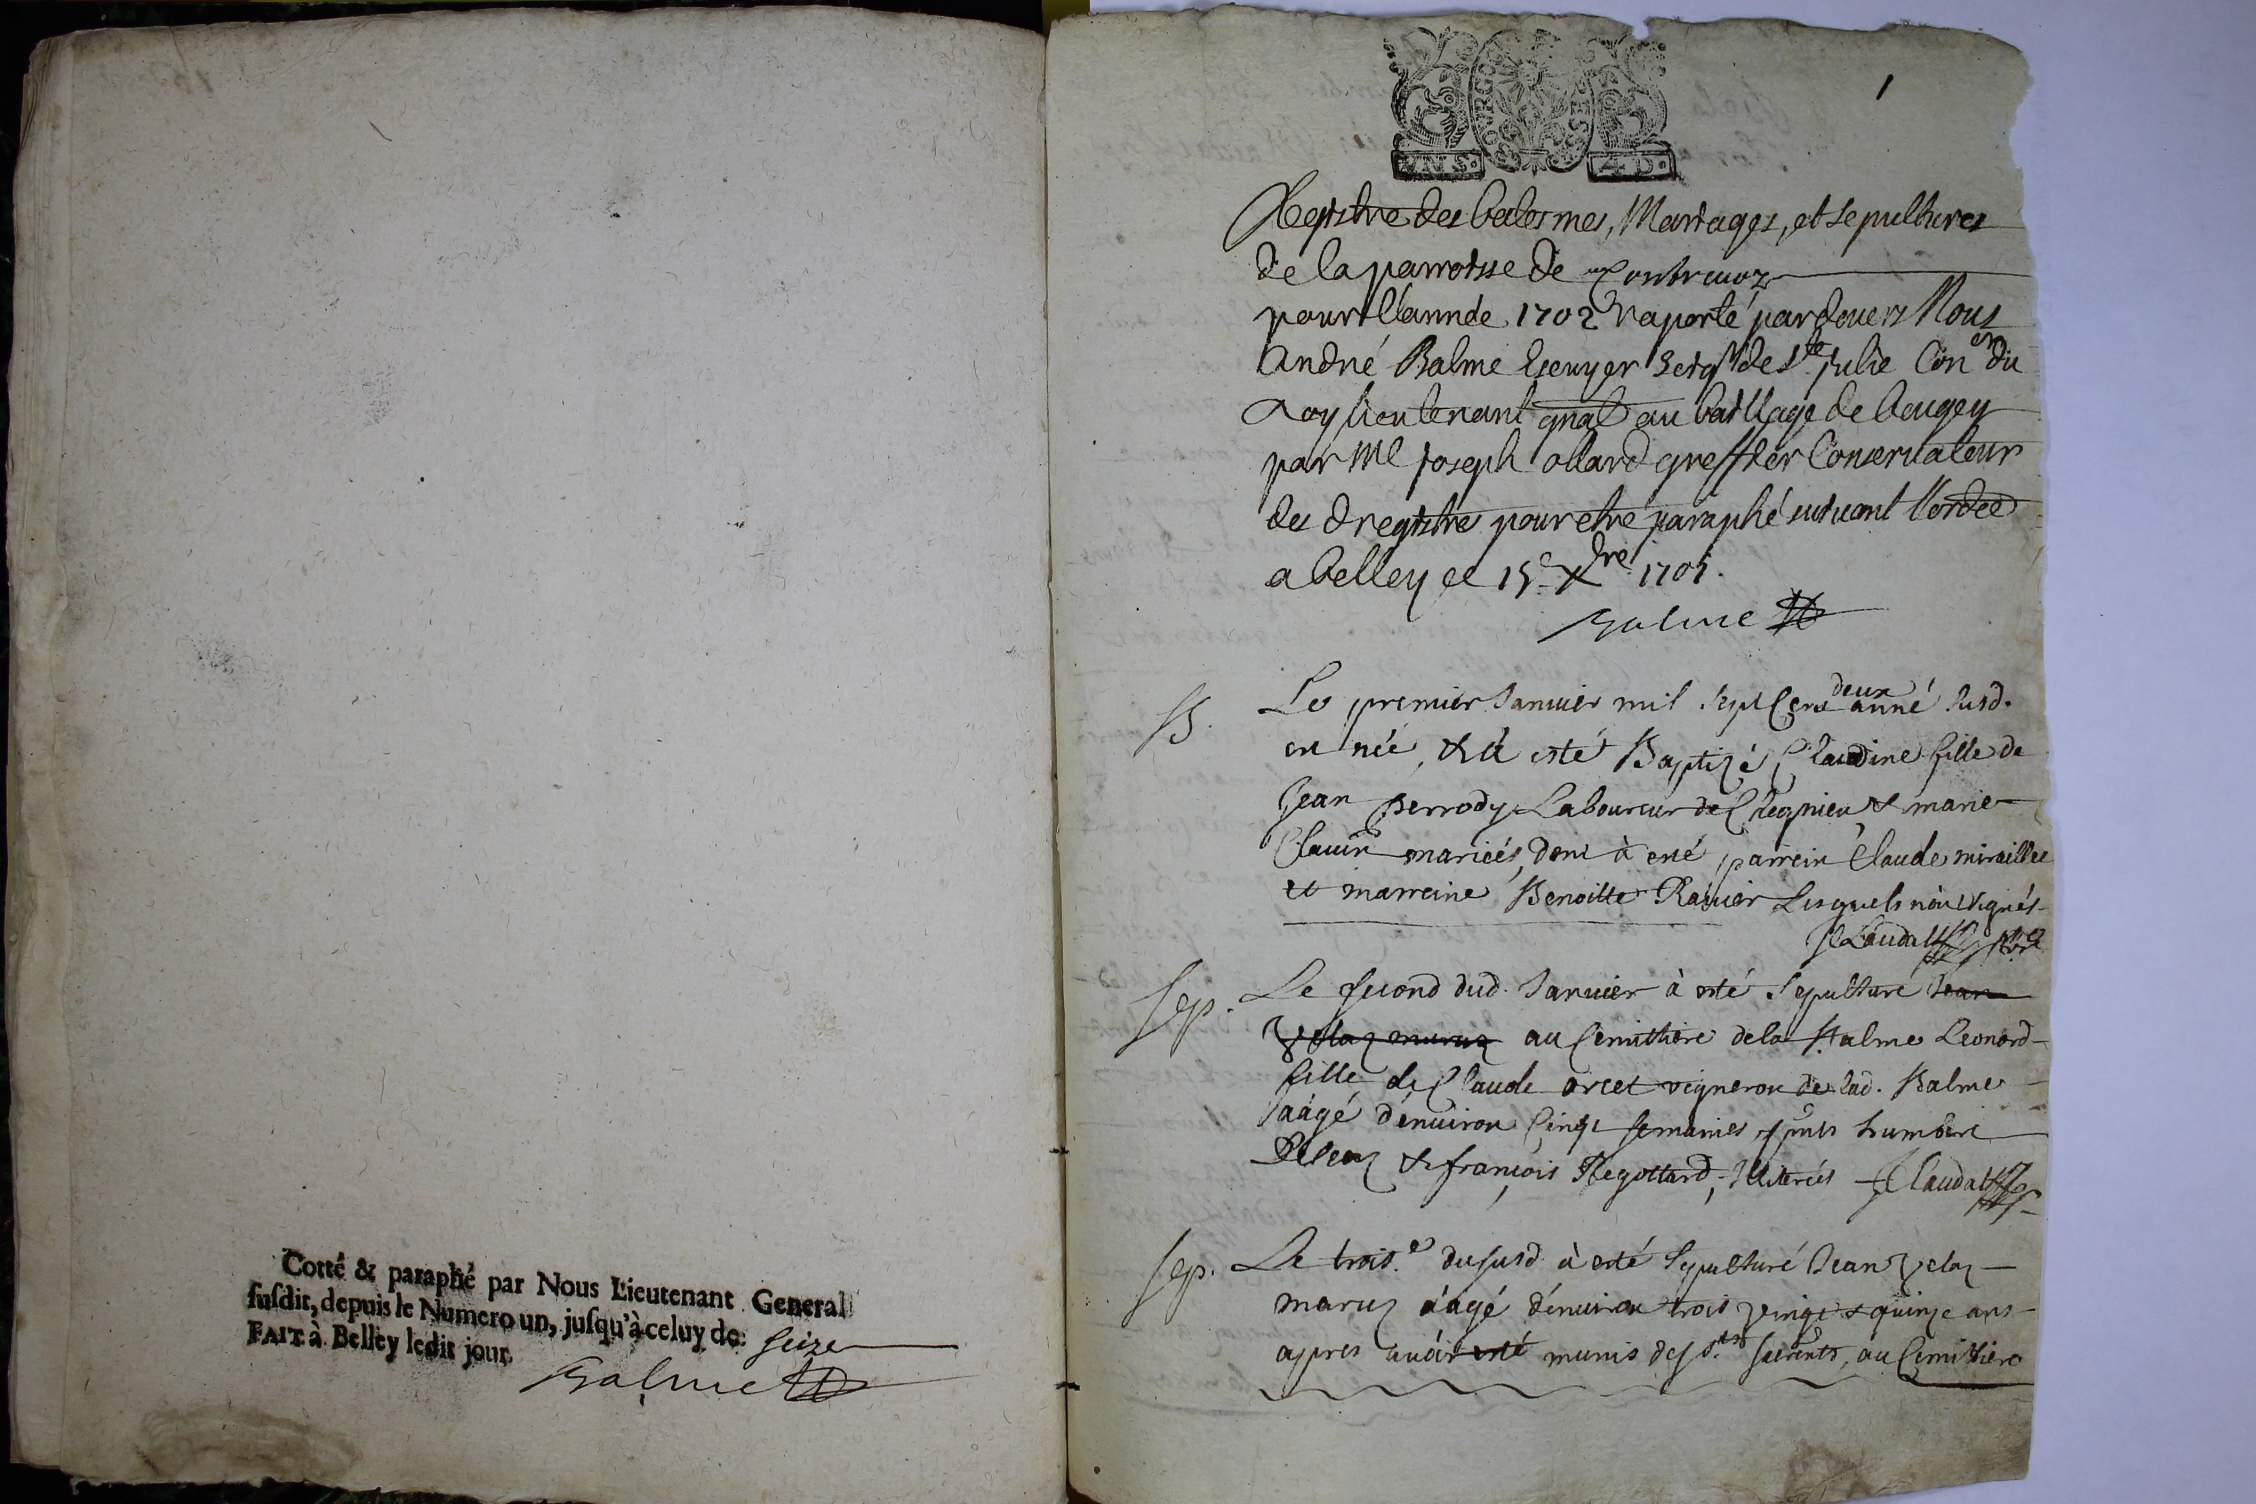 Cotté & paraphé par Nous Lieutenant General
susdit, depuis le Numero un, jusqu'à celuy de: seize
FAIT à Belley ledit jour.
Balme
1
BOURGO BRESSE
4 D.
Registre des batesmes, Mariages, et sepultures
de la parroisse de Contrevoz
pour l'année 1702 raporté pardevers Nous
André Balme Escuyer Seigr de Ste Julie Con er du
Roy lieutenant gnal au bailliage de beugey
par Me Joseph ollard greffier Conservateur
des d registre pour etre paraphé suivant l'ordce
a belley ce 15e Xbre 1701.
Balme
B. Le premier Janvier mil sept cens deux anné susd.
en née, & à esté Baptizé Claudine fille de
Jean Perrody Laboureur de Chegnieu & marie
Clavin mariés, dont à esté parrein Claude miraillet
et marreine Benoitte Ravier Lesquels n'ont signés
Sep. Le second dud. Janvier à esté sepulturé Jean
Velaz maruz au Cemithiere de la Balme Leonard
fille de Claude orset vigneron de lad. Balme
aàgé d'environ Cinq semaines, pnts humbert
& françois Regottard, Illiterés
Sep. Le trois.e du susd à esté sepulturé Jean Velaz
maruz aàgé d'environ trois vingt & quinze ans
apres avoir esté munis des Sts sacremts, au Cemithiere